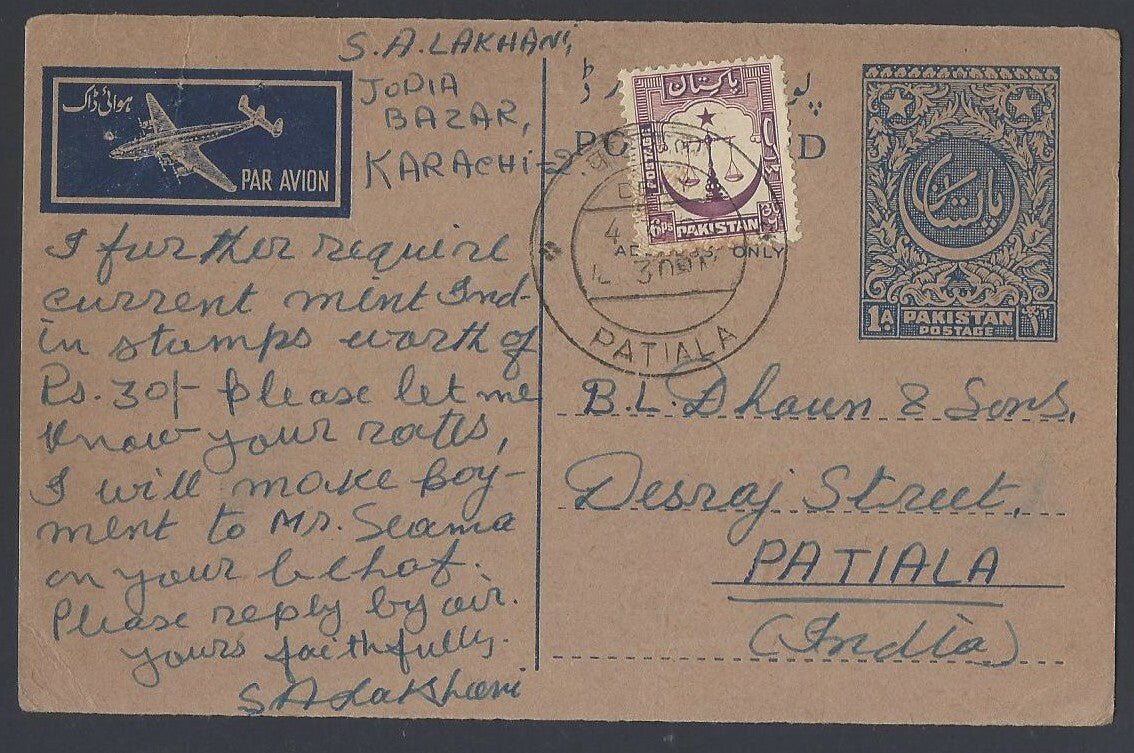 S.A.LAKHANI,
JODIA
BAZAR,
KARACHI-2.
ہوائی ڈاک
PAR AVION
I further require
current mint Ind-
in stamps worth of
Rs. 30/- please let me
know your rates,
I will make pay-
ment to Mr. Seama
on your behaf.
Please reply by air.
yours faithfully.
S A Lakhani
پاکستان
POSTAGE
6PS PAKISTAN
ADDRESS ONLY
PATIALA
پاکستان
1A PAKISTAN
POSTAGE
B.L. Dhawn & Sons,
Desraj Street,
PATIALA
(India)